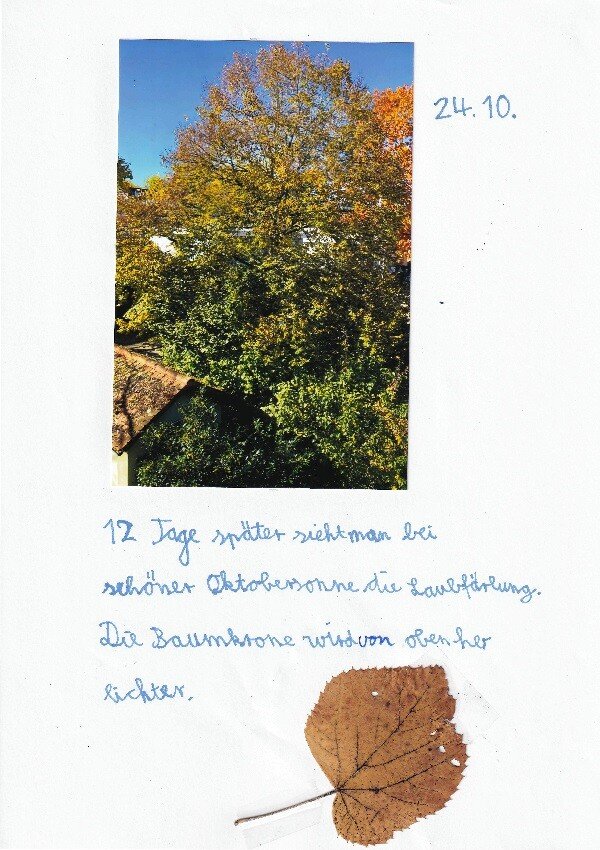 24.10.
12 Tage später sieht man bei
schöner Oktobersonne die Laubfärbung.
Die Baumkrone wird von oben her
lichter.